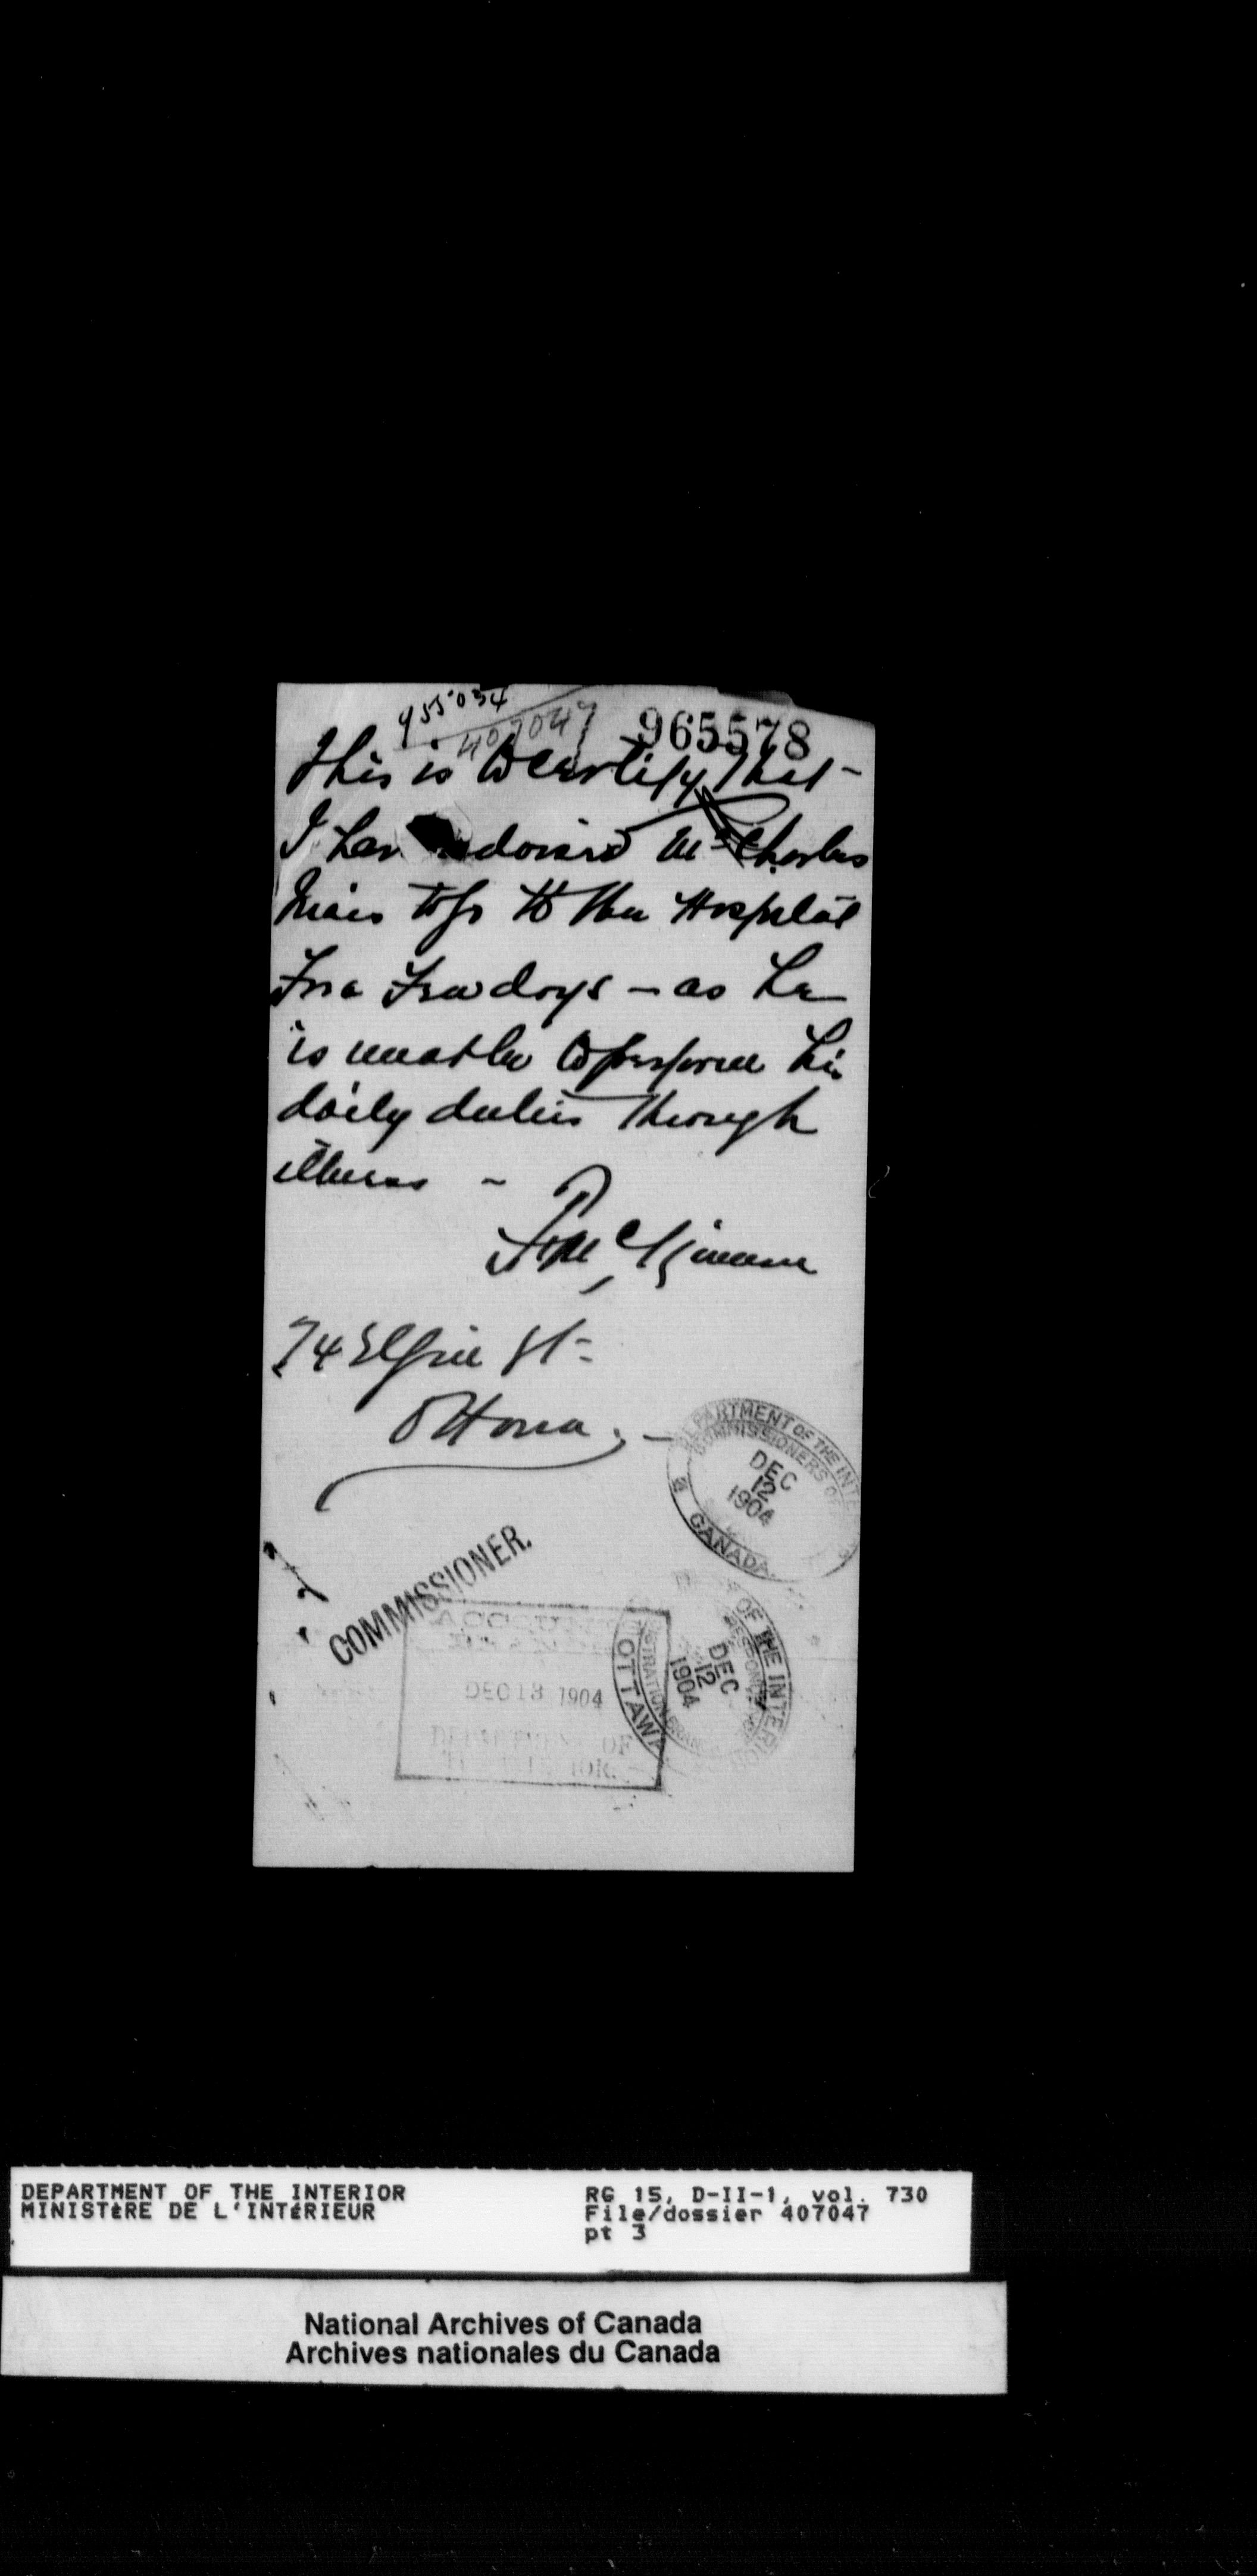 955034
407047
965578
This is to certify that -
I have advised Mr Charles
Mair to go to the Hospital
For a Few days - as he
is unable to perform his
daily duties through
illness -
74 Elgin St -
Ottawa. -
DEPARTMENT OF THE INT
COMMISSIONERS OF
DEC
12
1904
CANADA
COMMISSIONER.
ACCOUNT
DEC 13 1904
DEPARTMENT OF
OF THE INTERIOR
DEC
12
1904
OTTAWA
DEPARTMENT OF THE INTERIOR
MINISTèRE DE L'INTéRIEUR
RG 15, D-II-1, vol. 730
File/dossier 407047
pt 3
National Archives of Canada
Archives nationales du Canada